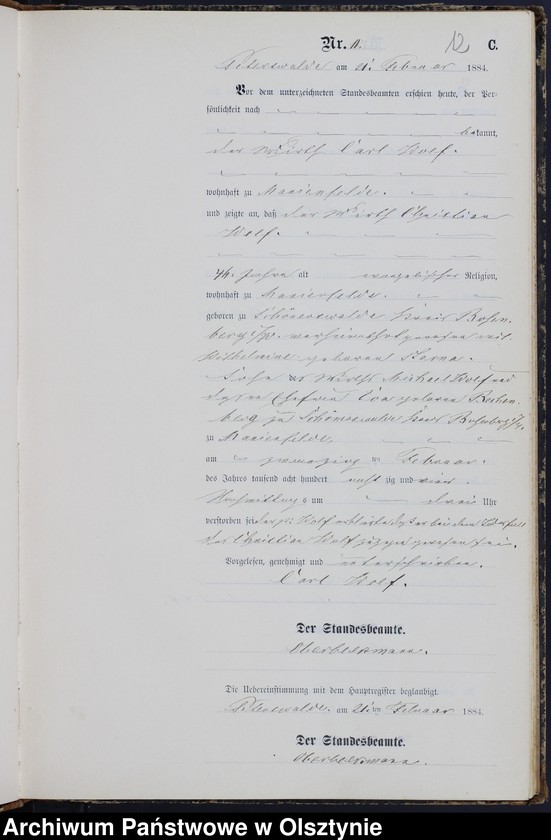 12
Nr. 11. C.
Peterswalde am 21. Februar 1884.
Vor dem unterzeichneten Standesbeamten erschien heute, der Per-
sönlichkeit nach
bekannt,
der Wirth Carl Wolf.
wohnhaft zu Marienfelde.
und zeigte an, daß der Wirth Christian
Wolf.
Jahre alt evangelischer Religion,
wohnhaft zu Marienfelde.
geboren zu Schönenwalde Kreis
verheirathet gewesen mit
Wilhelmine geborenen
Sohn des Wirths Michael Wolf und
dessen Ehefrau geboren
berg zu Schönenwalde Kreis
zu Marienfelde.
am zwanzig ten Februar.
des Jahres tausend acht hundert acht zig und vier.
Nachmittags um drei Uhr
verstorben sei Wolf erklärte daß er bei dem Todesfall
des Christian Wolf zugegen gewesen sei.
Vorgelesen, genehmigt und unterschrieben.
Carl Wolf.
Der Standesbeamte.
Die Uebereinstimmung mit dem Hauptregister beglaubigt.
Peterswalde. am 21. ten Februar 1884.
Der Standesbeamte.
Archiwum Państwowe w Olsztynie